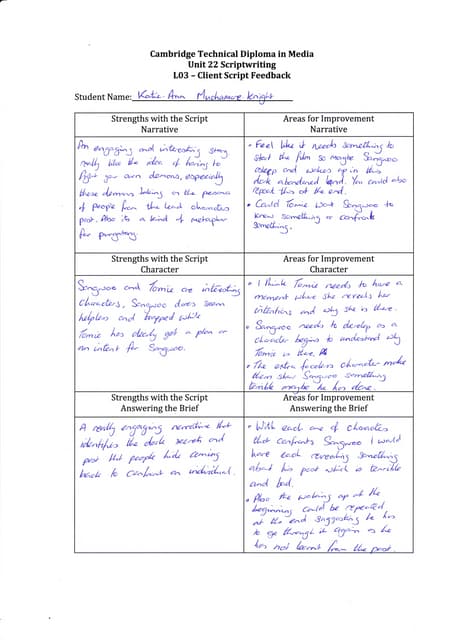 Cambridge Technical Diploma in Media
Unit 22 Scriptwriting
L03 – Client Script Feedback
Student Name: Katie-Ann Muchamore Knight
Strengths with the Script
Narrative
An engaging and interesting story
really like the idea of having to
fight your own demons, especially
these demons taking on the persona
of people from the lead characters
past. Also its a kind of metaphor
for purgatory.
Areas for Improvement
Narrative
• Feel like it needs something to
start the film so maybe Sangwoo
asleep and wakes up in this
dark abandoned land. You could also
repeat this at the end.
• Could Tomie want Sangwoo to
know something or confront
something.
Strengths with the Script
Character
Sangwoo and Tomie are interesting
characters, Sangwoo does seem
helpless and trapped while
Tomie has clearly got a plan or
an intent for Sangwoo.
Areas for Improvement
Character
• I think Tomie needs to have a
moment where she reveals her
intentions and why she is there.
• Sangwoo needs to develop as a
character begins to understand why
Tomie is there.
• The extra faceless character make
them show Sangwoo something
terrible maybe he has done.
Strengths with the Script
Answering the Brief
A really engaging narrative that
identifies the dark secrets and
past that people hide coming
back to confront an individual.
Areas for Improvement
Answering the Brief
• With each one of characters
that confronts Sangwoo I would
have each revealing something
about his past which is terrible
and bad.
• Also the waking up at the
beginning could be repeated
at the end suggesting he has
to go through it again as he
has not learnt from the past.